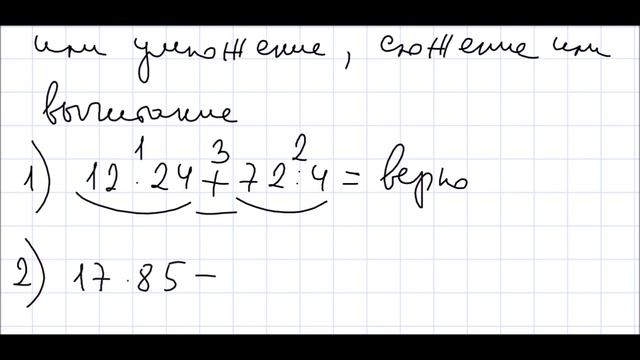 или умножение, сложение или
вычитание
1 3 2
1) 12 · 24 + 72 : 4 = верно
2) 17 · 85 –